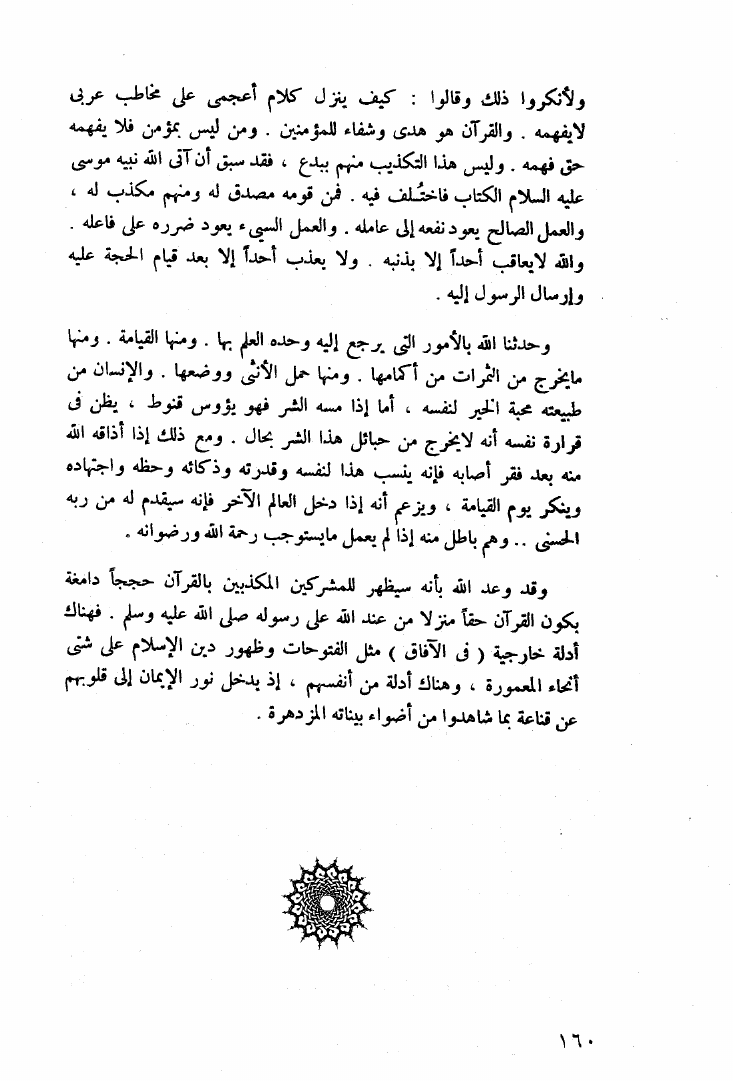 ولأنكروا ذلك وقالوا : كيف ينزل كلام أعجمى على مخاطب عربى
لايفهمه . والقرآن هو هدى وشفاء للمؤمنين . ومن ليس بمؤمن فلا يفهمه
حق فهمه . وليس هذا التكذيب منهم ببدع ، فقد سبق أن آتى الله نبيه موسى
عليه السلام الكتاب فاختُـلف فيه . فمن قومه مصدق له ومنهم مكذب له ،
والعمل الصالح يعود نفعه إلى عامله . والعمل السيىء يعود ضرره على فاعله .
والله لايعاقب أحداً إلا بذنبه . ولا يعذب أحداً إلا بعد قيام الحجة عليه
وإرسال الرسول إليه .
وحدثنا الله بالأمور التى يرجع إليه وحده العلم بها . ومنها القيامة . ومنها
مايخرج من الثمرات من أكمامها . ومنها حمل الأنثى ووضعها . والإنسان من
طبيعته محبة الخير لنفسه ، أما إذا مسه الشر فهو يؤوس قنوط ، يظن فى
قرارة نفسه أنه لايخرج من حبائل هذا الشر بحال . ومع ذلك إذا أذاقه الله
منه بعد فقر أصابه فإنه ينسب هذا لنفسه وقدرته وذكائه وحظه واجتهاده
وينكر يوم القيامة ، ويزعم أنه إذا دخل العالم الآخر فإنه سيقدم له من ربه
الحسنى .. وهم باطل منه إذا لم يعمل مايستوجب رحمة الله ورضوانه .
وقد وعد الله بأنه سيظهر للمشركين المكذبين بالقرآن حججاً دامغة
بكون القرآن حقاً منزلا من عند الله على رسوله صلى الله عليه وسلم . فهناك
أدلة خارجية ( فى الآفاق ) مثل الفتوحات وظهور دين الإسلام على شتى
أنحاء المعمورة ، وهناك أدلة من أنفسهم ، إذ يدخل نور الإيمان إلى قلوبهم
عن قناعة بما شاهدوا من أضواء بيناته المزدهرة .
١٦٠